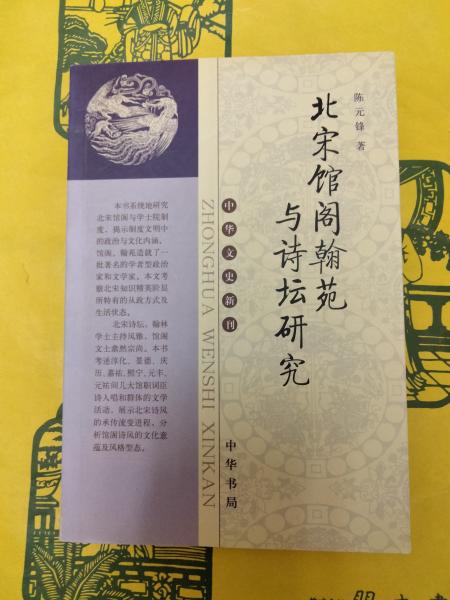 陈元锋 著
北宋馆阁翰苑
与诗坛研究
中华文史新刊
ZHONGHUA WENSHI XINKAN
中华书局
本书系统地研究
北宋馆阁与学士院制
度，揭示制度文明中
的政治与文化内涵。
馆阁、翰苑造就了一
批著名的学者型政治
家和文学家。本文考
察北宋知识精英阶层
所特有的从政方式及
生活状态。
北宋诗坛，翰林
学士主持风雅，馆阁
文士翕然宗尚。本书
考述淳化、景德、庆
历、嘉祐、熙宁、元丰、
元祐间几大馆职词臣
诗人唱和群体的文学
活动，展示北宋诗风
的承传流变进程，分
析馆阁诗风的文化意
蕴及风格型态。